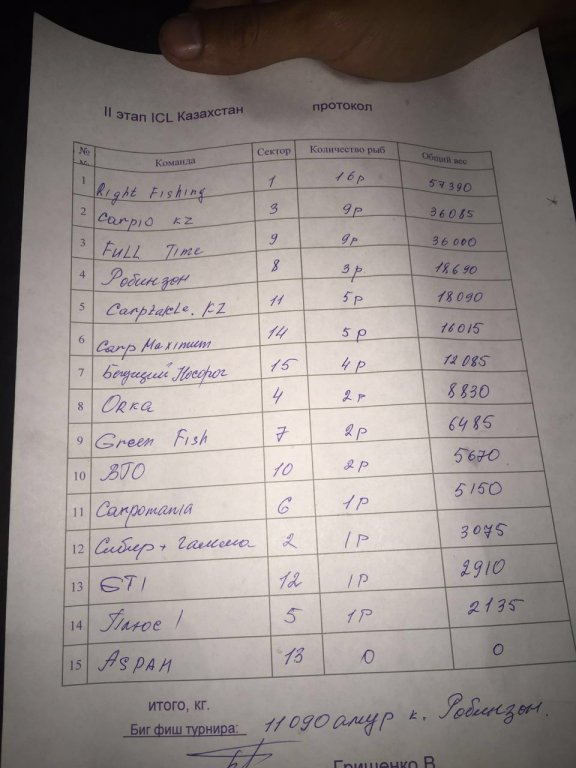 II этап ICL Казахстан протокол
№ Команда Сектор Количество рыб Общий вес
1 Right Fishing 1 16р 57390
2 Carpio KZ 3 9р 36085
3 FuLL Time 9 9р 36000
4 Робинзон 8 3р 18690
5 Carptakle.KZ 11 5р 18090
6 Carp Maximum 14 5р 16015
7 Бегущий Носорог 15 4р 12085
8 Orka 4 2р 8830
9 Green Fish 7 2р 6485
10 ВТО 10 2р 5670
11 Carpomania 6 1р 5150
12 Сибир + Гамма 2 1р 3075
13 GTI 12 1р 2910
14 Плюс 1 5 1р 2135
15 ASPAN 13 0 0
итого, кг.
Биг фиш турнира: 11090 амур к. Робинзон.
Грищенко В